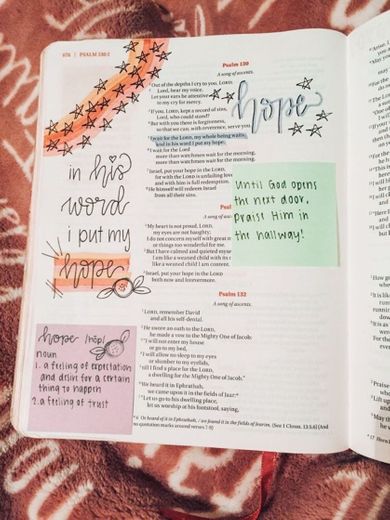 676 | PSALM 130:1
in his
word
i put my
hope
hope /hōp/
noun
1. a feeling of expectation
and desire for a certain
thing to happen
2. a feeling of trust
Psalm 130
A song of ascents.
Out of the depths I cry to you, LORD;
Lord, hear my voice.
Let your ears be attentive
to my cry for mercy.
If you, LORD, kept a record of sins,
Lord, who could stand?
But with you there is forgiveness,
so that we can, with reverence, serve you.
I wait for the LORD, my whole being waits,
and in his word I put my hope.
I wait for the Lord
more than watchmen wait for the morning,
more than watchmen wait for the morning.
Israel, put your hope in the LORD,
for with the LORD is unfailing love
and with him is full redemption.
He himself will redeem Israel
from all their sins.
hope
Until God opens
the next door,
praise Him in
the hallway!
A song of
My heart is not proud, LORD,
my eyes are not haughty;
I do not concern myself with great
or things too wonderful for me.
But I have calmed and quieted myself
I am like a weaned child with its
like a weaned child I am content.
Israel, put your hope in the LORD
both now and forevermore.
Psalm 132
A song of ascents.
LORD, remember David
and all his self-denial.
He swore an oath to the LORD,
he made a vow to the Mighty One of Jacob:
"I will not enter my house
or go to my bed,
I will allow no sleep to my eyes
or slumber to my eyelids,
till I find a place for the LORD,
a dwelling for the Mighty One of Jacob."
We heard it in Ephrathah,
we came upon it in the fields of Jaar:
"Let us go to his dwelling place,
let us worship at his footstool, saying,